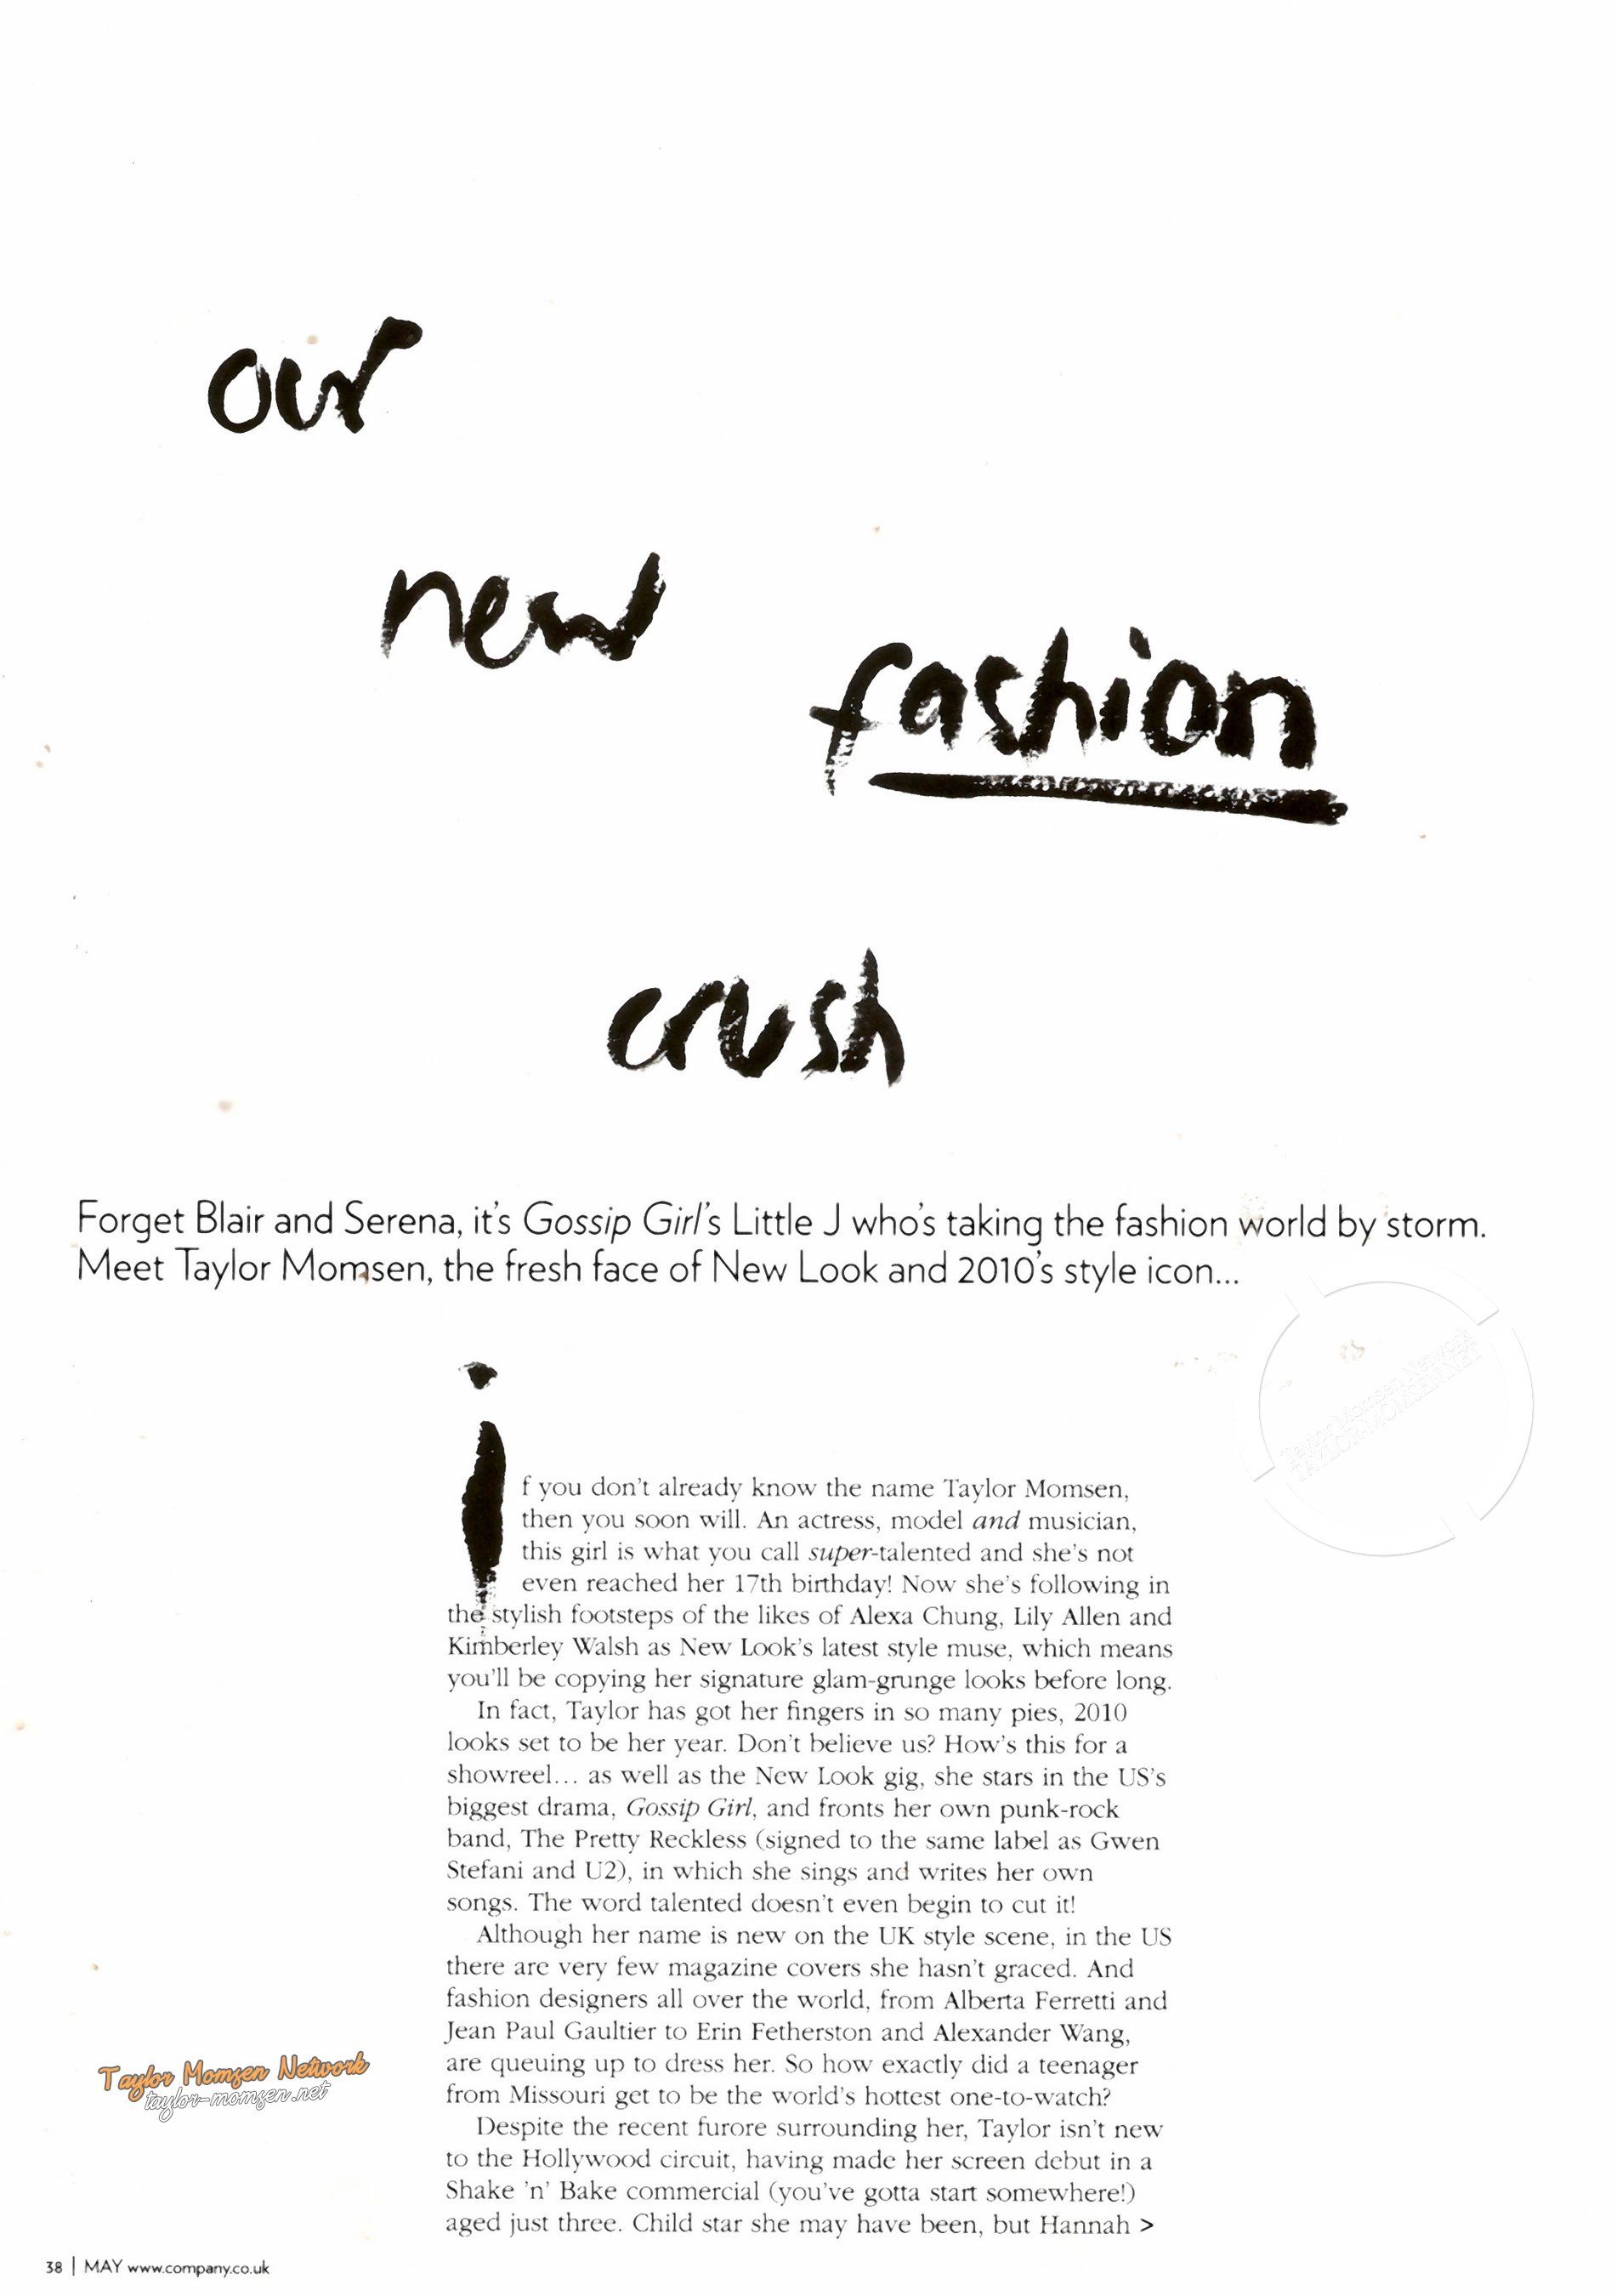 our
new
fashion
crush
Forget Blair and Serena, it's Gossip Girl's Little J who's taking the fashion world by storm.
Meet Taylor Momsen, the fresh face of New Look and 2010's style icon...
Taylor Momsen Network
TAYLOR-MOMSEN.NET
if you don't already know the name Taylor Momsen,
then you soon will. An actress, model and musician,
this girl is what you call super-talented and she's not
even reached her 17th birthday! Now she's following in
the stylish footsteps of the likes of Alexa Chung, Lily Allen and
Kimberley Walsh as New Look's latest style muse, which means
you'll be copying her signature glam-grunge looks before long.
In fact, Taylor has got her fingers in so many pies, 2010
looks set to be her year. Don't believe us? How's this for a
showreel... as well as the New Look gig, she stars in the US's
biggest drama, Gossip Girl, and fronts her own punk-rock
band, The Pretty Reckless (signed to the same label as Gwen
Stefani and U2), in which she sings and writes her own
songs. The word talented doesn't even begin to cut it!
Although her name is new on the UK style scene, in the US
there are very few magazine covers she hasn't graced. And
fashion designers all over the world, from Alberta Ferretti and
Jean Paul Gaultier to Erin Fetherston and Alexander Wang,
are queuing up to dress her. So how exactly did a teenager
from Missouri get to be the world's hottest one-to-watch?
Despite the recent furore surrounding her, Taylor isn't new
to the Hollywood circuit, having made her screen debut in a
Shake 'n' Bake commercial (you've gotta start somewhere!)
aged just three. Child star she may have been, but Hannah >
Taylor Momsen Network
taylor-momsen.net
38 | MAY www.company.co.uk